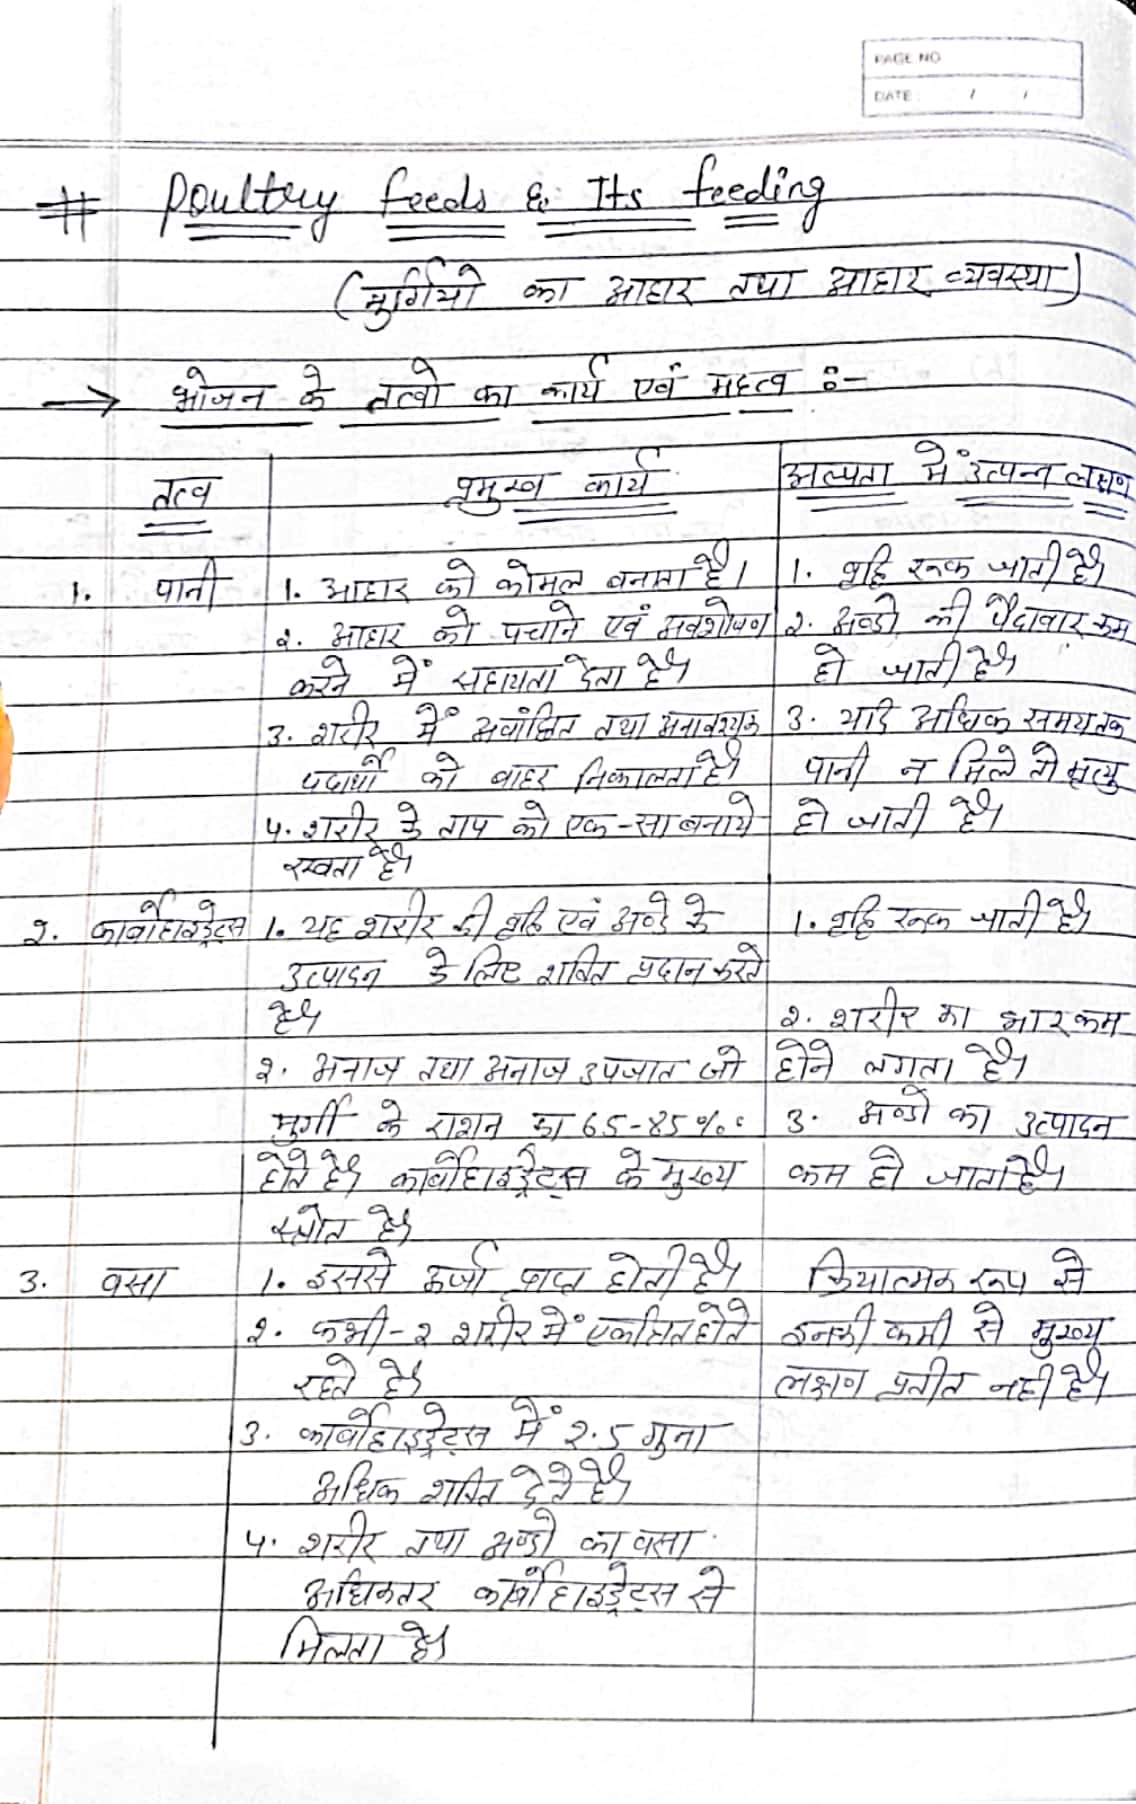 PAGE NO
DATE / /
# Poultry feeds & Its feeding
(मुर्गियो का आहार तथा आहार व्यवस्था)
→ भोजन के तत्वो का कार्य एवं महत्व :-
तत्व प्रमुख कार्य अल्पता में उत्पन्न लक्षण
1. पानी 1. आहार को कोमल बनाता है। 1. वृद्दि रूक जाती है।
2. आहार को पचाने एवं अवशोषण 2. अण्डो की पैदावार कम
करने में सहायता देता है। हो जाती है।
3. शरीर में अवांछित तथा अनावश्यक 3. यदि अधिक समय तक
पदार्थो को बाहर निकालता है। पानी न मिले तो मृत्यु
4. शरीर के ताप को एक-सा बनाये हो जाती है।
रखता है।
2. कार्बोहाइड्रेट्स 1. यह शरीर की वृद्दि एवं अण्डे के 1. वृद्दि रूक जाती है।
उत्पादन के लिए शक्ति प्रदान करते
है। 2. शरीर का भार कम
2. अनाज तथा अनाज उपजात जो होने लगता है।
मुर्गी के राशन का 65-85% 3. अण्डो का उत्पादन
होते है। कार्बोहाइड्रेट्स के मुख्य कम हो जाता है।
स्त्रोत है।
3. वसा 1. इससे ऊर्जा प्राप्त होती है। क्रियात्मक रूप से
2. कभी-2 शरीर में एकत्रित होते इनकी कमी से मुख्य
रहते है। लक्षण प्रतीत नही है।
3. कार्बोहाइड्रेट्स में 2.5 गुना
अधिक शक्ति देते है।
4. शरीर तथा अण्डो का वसा
अधिकतर कार्बोहाइड्रेट्स से
मिलता है।